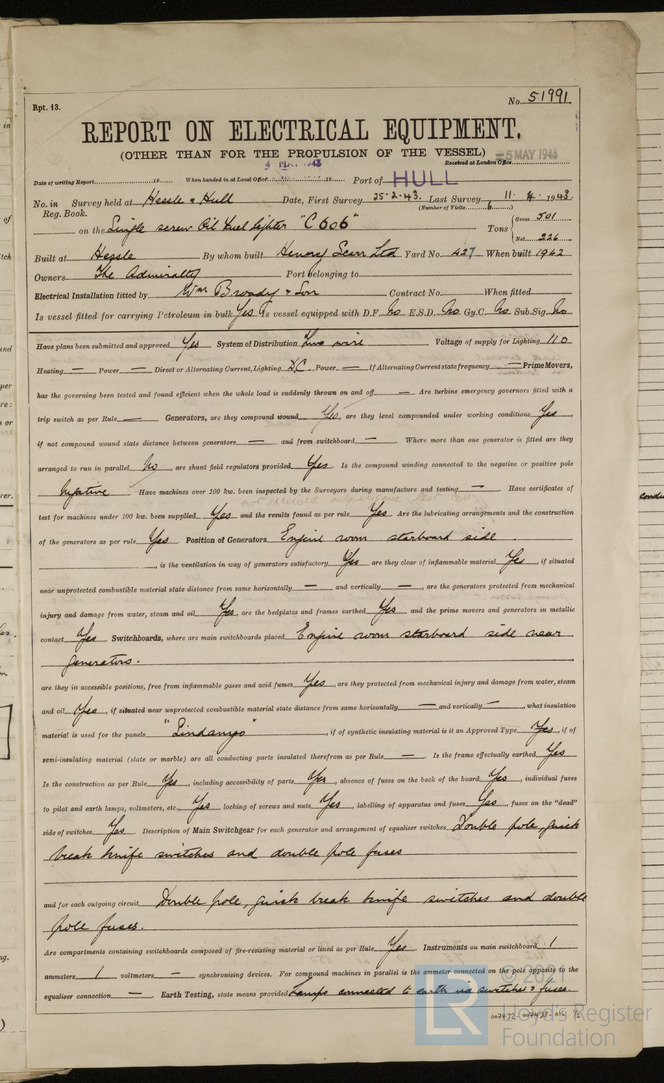 Rpt. 13.
No. 51991
REPORT ON ELECTRICAL EQUIPMENT.
(OTHER THAN FOR THE PROPULSION OF THE VESSEL)
5 MAY 1943
Received at London Office
Date of writing Report 19 When handed in at Local Office 19 Port of HULL
No. in Survey held at Hessle & Hull Date, First Survey 25.2.43. Last Survey 11. 4. 1943
Reg. Book. (Number of Visits 6)
on the Single screw Oil Fuel lighter "C606" Tons { Gross 501 Net 226
Built at Hessle By whom built Henry Scarr Ltd Yard No. 427 When built 1942
Owners The Admiralty Port belonging to
Electrical Installation fitted by Wm Broady & Son Contract No. When fitted
Is vessel fitted for carrying Petroleum in bulk Yes Is vessel equipped with D.F. No E.S.D. No Gy.C. No Sub.Sig. No
Have plans been submitted and approved Yes System of Distribution Two wire Voltage of supply for Lighting 110
Heating — Power — Direct or Alternating Current, Lighting D.C. Power — If Alternating Current state frequency — Prime Movers,
has the governing been tested and found efficient when the whole load is suddenly thrown on and off — Are turbine emergency governors fitted with a
trip switch as per Rule — Generators, are they compound wound Yes, are they level compounded under working conditions Yes
if not compound wound state distance between generators — and from switchboard — Where more than one generator is fitted are they
arranged to run in parallel No, are shunt field regulators provided Yes Is the compound winding connected to the negative or positive pole
Negative Have machines over 100 kw. been inspected by the Surveyors during manufacture and testing — Have certificates of
test for machines under 100 kw. been supplied Yes and the results found as per rule Yes Are the lubricating arrangements and the construction
of the generators as per rule Yes Position of Generators Engine room starboard side
, is the ventilation in way of generators satisfactory Yes are they clear of inflammable material Yes, if situated
near unprotected combustible material state distance from same horizontally — and vertically —, are the generators protected from mechanical
injury and damage from water, steam and oil Yes, are the bedplates and frames earthed Yes and the prime movers and generators in metallic
contact Yes Switchboards, where are main switchboards placed Engine room starboard side near
generators.
are they in accessible positions, free from inflammable gases and acid fumes Yes, are they protected from mechanical injury and damage from water, steam
and oil Yes, if situated near unprotected combustible material state distance from same horizontally — and vertically —, what insulation
material is used for the panels "Sindanyo", if of synthetic insulating material is it an Approved Type Yes, if of
semi-insulating material (slate or marble) are all conducting parts insulated therefrom as per Rule — Is the frame effectually earthed Yes
Is the construction as per Rule Yes, including accessibility of parts Yes, absence of fuses on the back of the board Yes, individual fuses
to pilot and earth lamps, voltmeters, etc. Yes locking of screws and nuts Yes, labelling of apparatus and fuses Yes, fuses on the "dead"
side of switches Yes. Description of Main Switchgear for each generator and arrangement of equaliser switches Double pole, quick
break knife switches and double pole fuses
and for each outgoing circuit Double pole, quick break knife switches and double
pole fuses.
Are compartments containing switchboards composed of fire-resisting material or lined as per Rule Yes Instruments on main switchboard 1
ammeters 1 voltmeters — synchronising devices. For compound machines in parallel is the ammeter connected on the pole opposite to the
equaliser connection — Earth Testing, state means provided Lamps connected to earth via switches & fuses.
© 2021
LR Lloyd's Register
Foundation